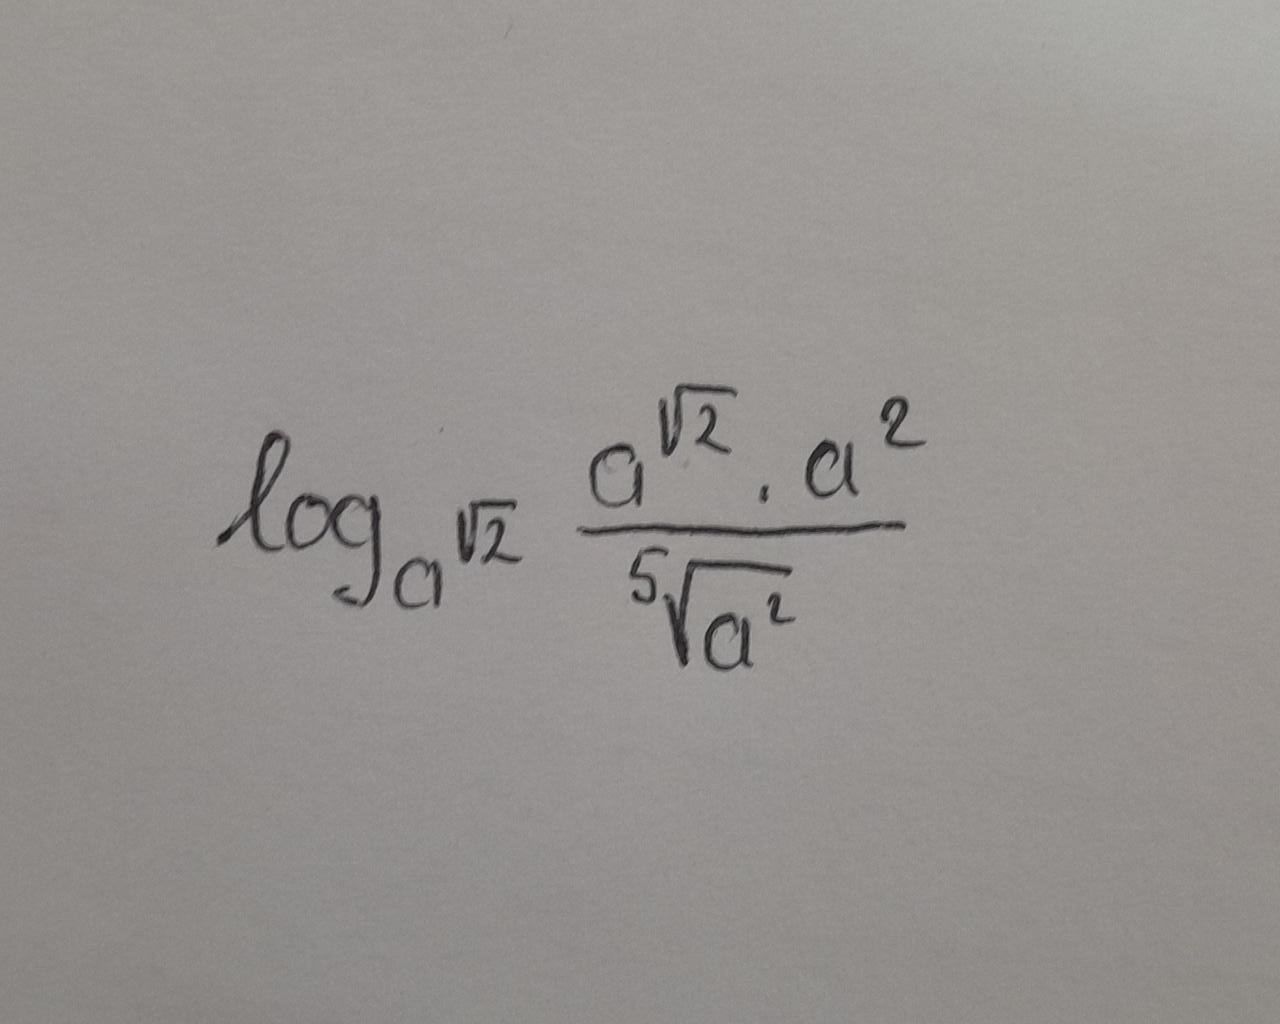 log_{a^{√2}} \frac{a^{√2} . a^2}{\sqrt[5]{a^2}}